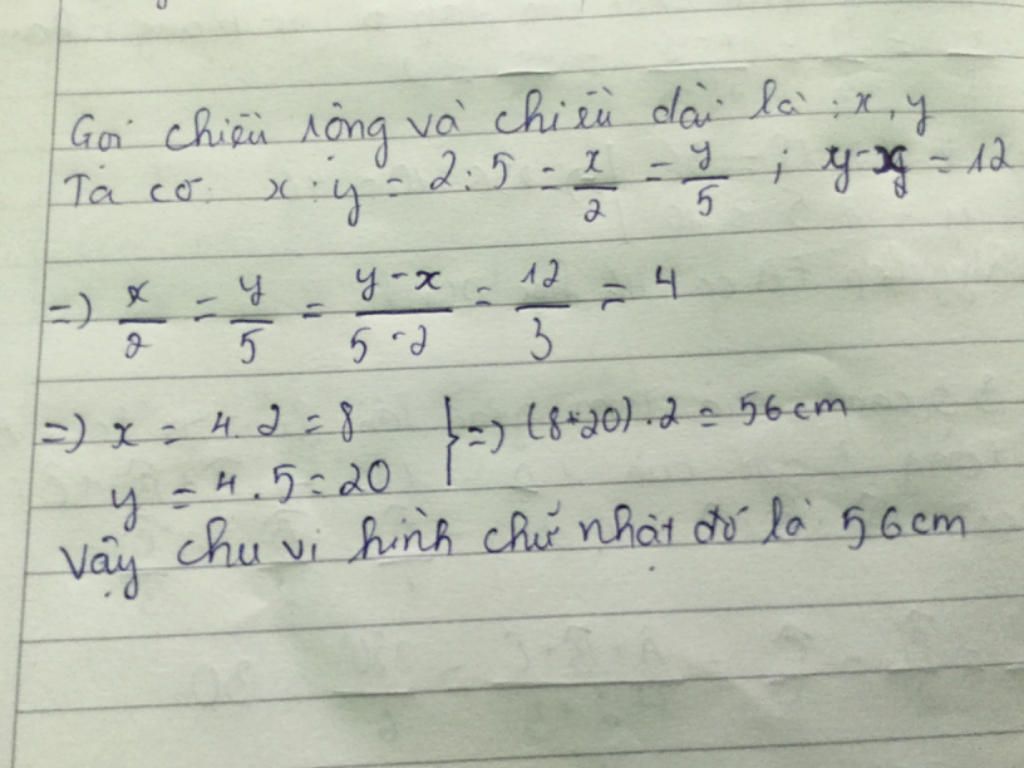 Gọi chiều rộng và chiều dài là : x, y
Ta có: x : y = 2 : 5 = x/2 = y/5 ; y-x = 12
=> x/2 = y/5 = y-x/5-2 = 12/3 = 4
=> x = 4.2 = 8 } => (8+20).2 = 56 cm
y = 4.5 = 20
Vậy chu vi hình chữ nhật đó là 56 cm